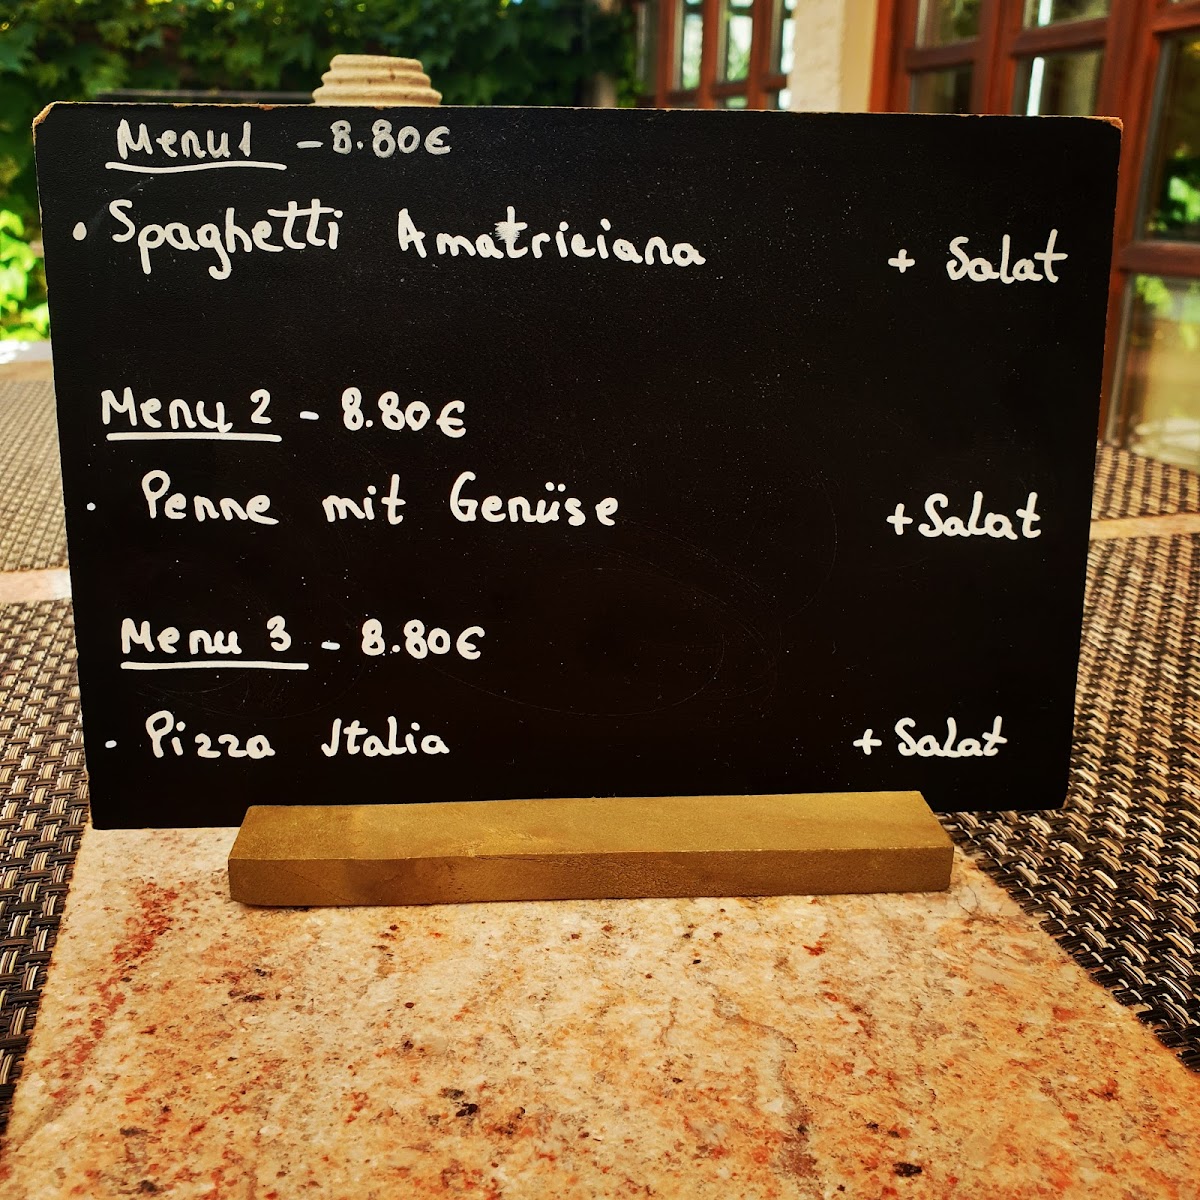 Menu1 - 8.80€
• Spaghetti Amatriciana + Salat
Menu 2 - 8.80€
• Penne mit Genüse + Salat
Menu 3 - 8.80€
- Pizza Italia + Salat